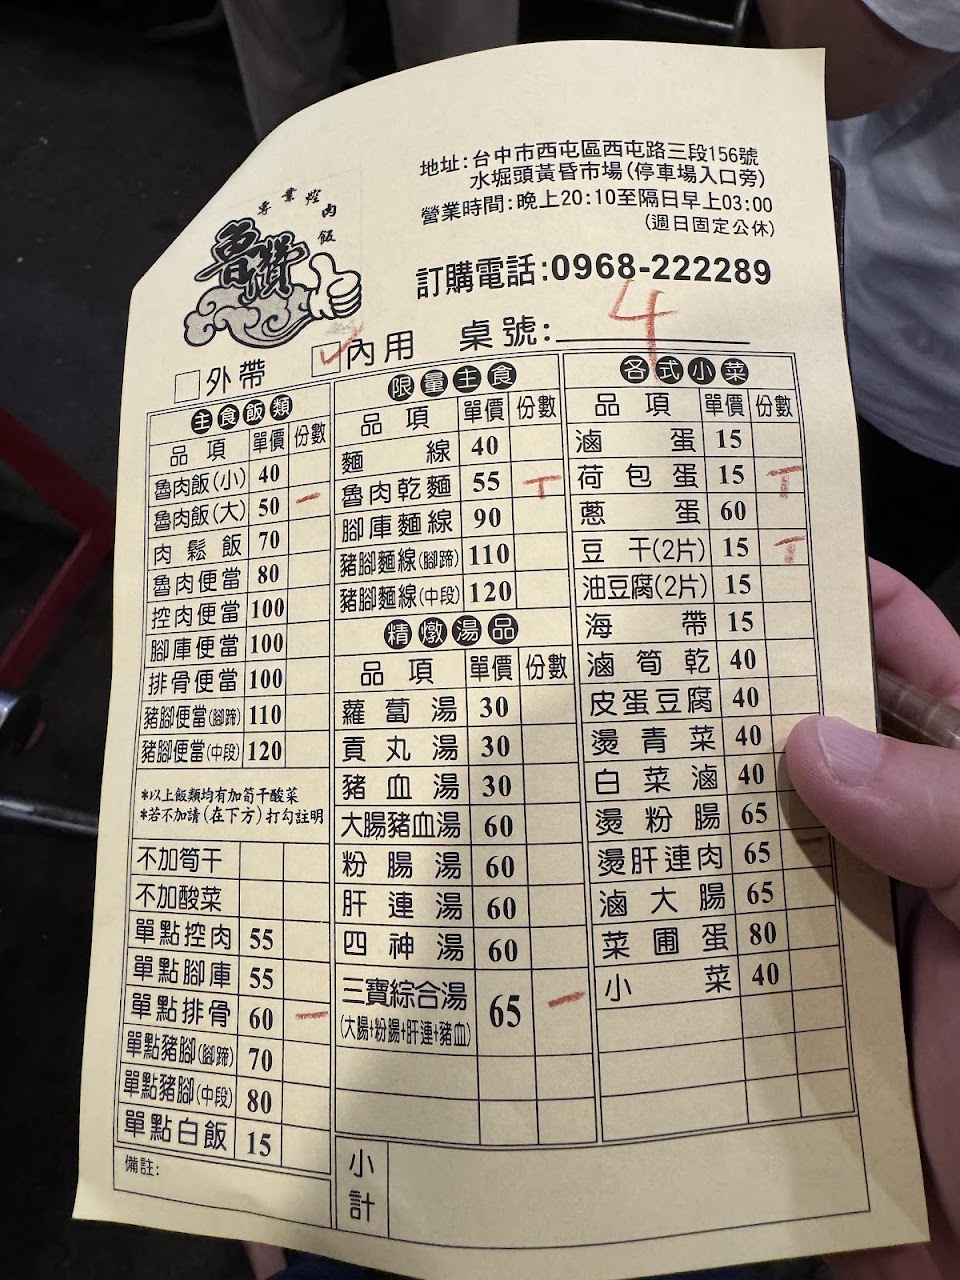 地址:台中市西屯區西屯路三段156號
水堀頭黃昏市場(停車場入口旁)
營業時間:晚上20:10至隔日早上03:00
(週日固定公休)
專業控肉飯
魯贊
訂購電話:0968-222289
外帶 ✓內用 桌號: 4
主食飯類
品項 單價 份數
魯肉飯(小) 40
魯肉飯(大) 50 一
肉鬆飯 70
魯肉便當 80
控肉便當 100
腳庫便當 100
排骨便當 100
豬腳便當(腳蹄) 110
豬腳便當(中段) 120
*以上飯類均有加筍干酸菜
*若不加請(在下方)打勾註明
不加筍干
不加酸菜
單點控肉 55
單點腳庫 55
單點排骨 60 一
單點豬腳(腳蹄) 70
單點豬腳(中段) 80
單點白飯 15
備註:
限量主食
品項 單價 份數
麵線 40
魯肉乾麵 55 T
腳庫麵線 90
豬腳麵線(腳蹄) 110
豬腳麵線(中段) 120
精燉湯品
品項 單價 份數
蘿蔔湯 30
貢丸湯 30
豬血湯 30
大腸豬血湯 60
粉腸湯 60
肝連湯 60
四神湯 60
三寶綜合湯 65 一
(大腸+粉腸+肝連+豬血)
小計
各式小菜
品項 單價 份數
滷蛋 15
荷包蛋 15 T
蔥蛋 60
豆干(2片) 15 T
油豆腐(2片) 15
海帶 15
滷筍乾 40
皮蛋豆腐 40
燙青菜 40
白菜滷 40
燙粉腸 65
燙肝連肉 65 一
滷大腸 65
菜圃蛋 80
小菜 40